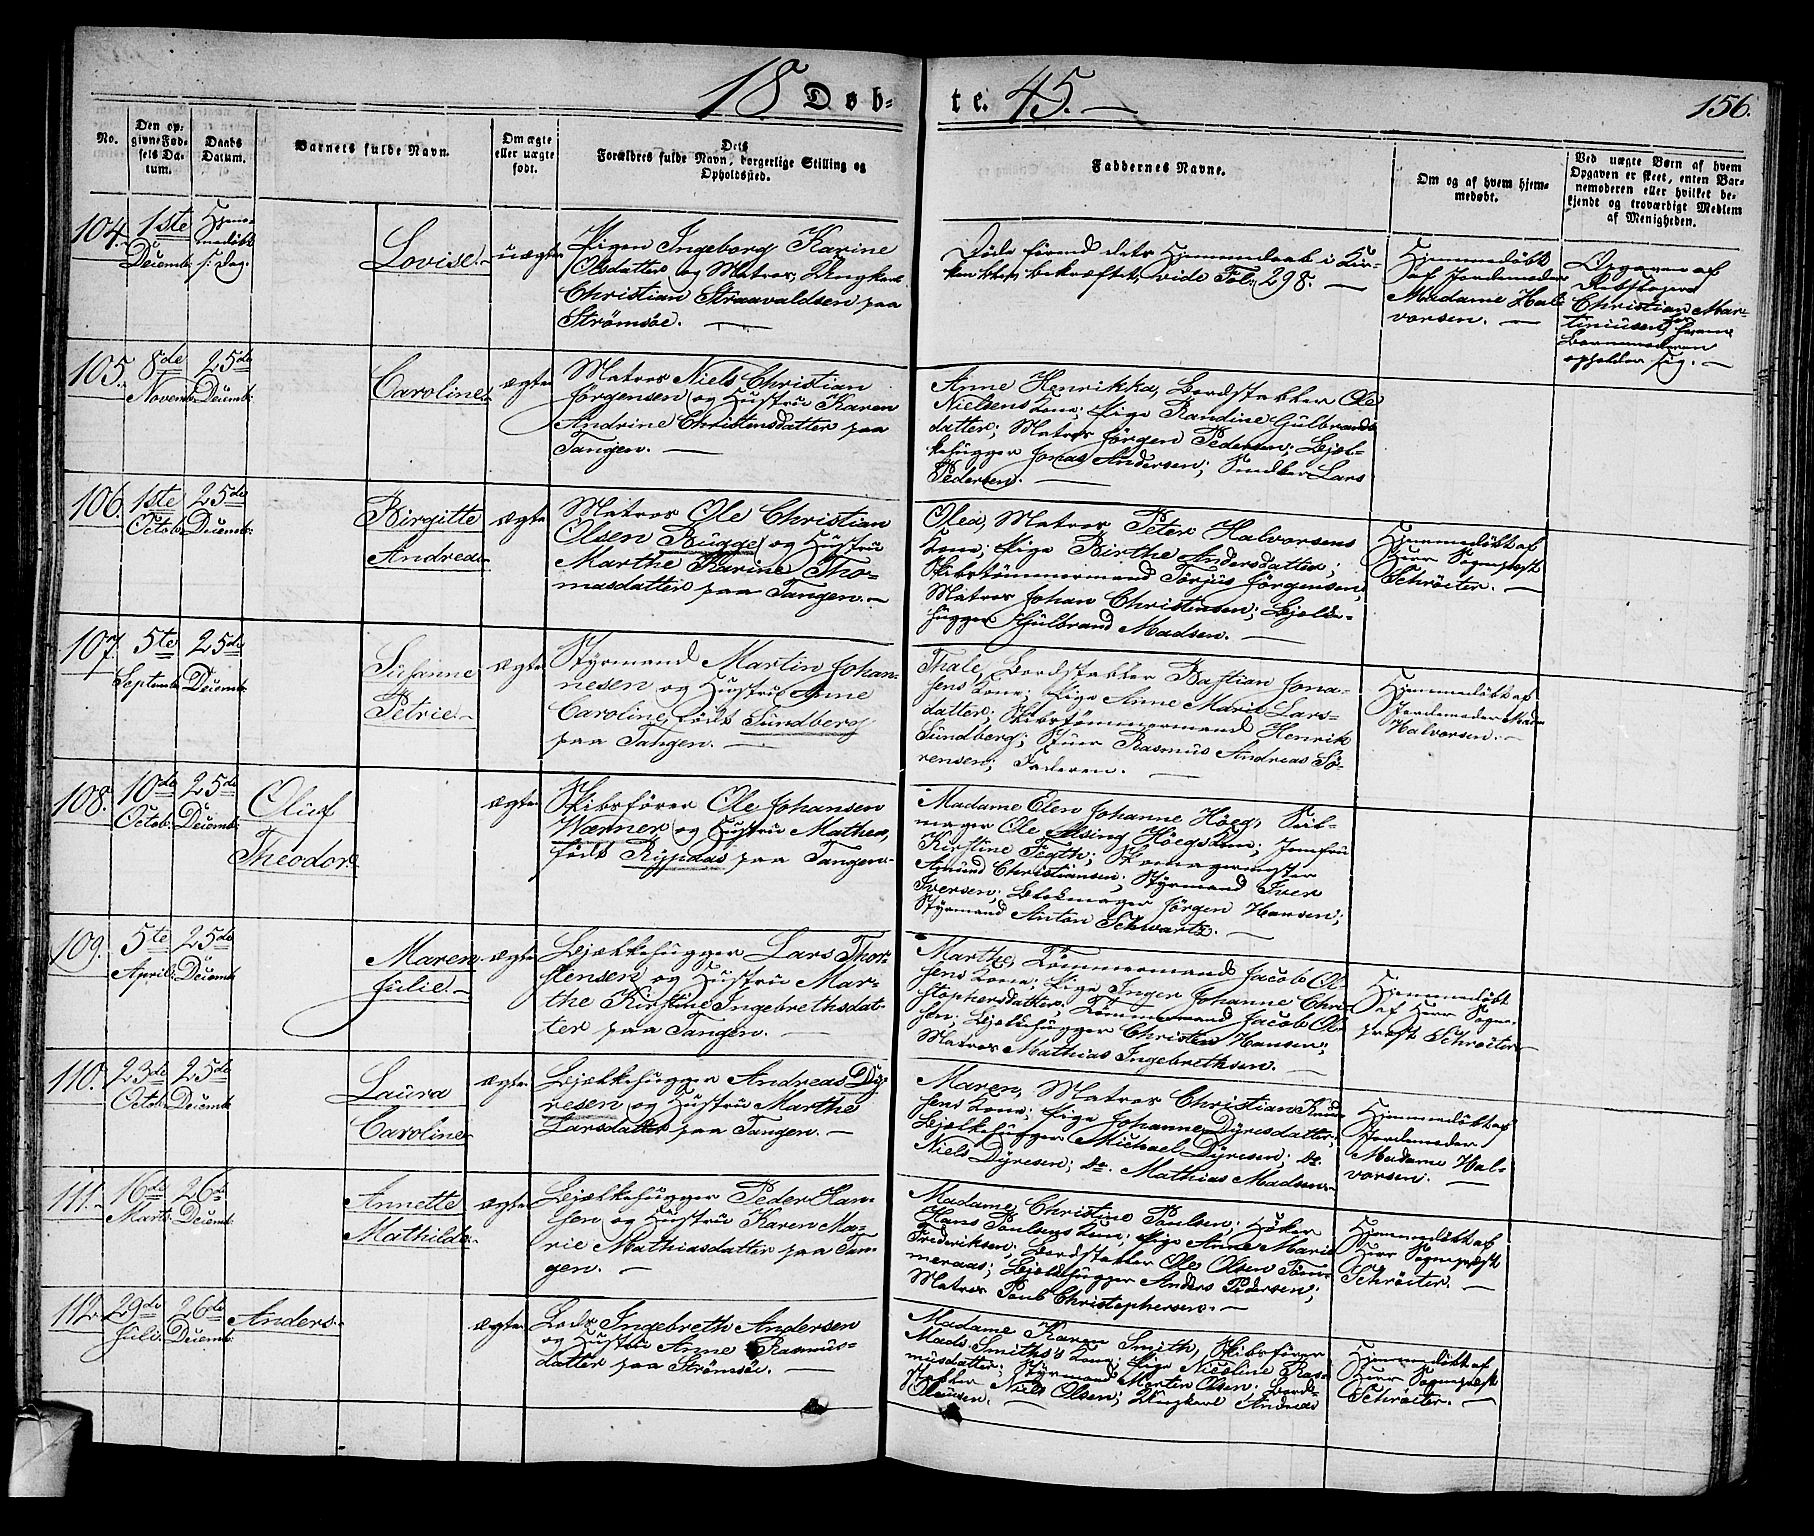 18 Døb-
te. 45. —
156.
No.
Den op-
givne Fød-
sels Da-
tum.
Daabs
Datum.
Barnets fulde Navn.
Om ægte
eller uægte
født.
Dets
Forældres fulde Navn, borgerlige Stilling og
Opholdssted.
Faddernes Navne.
Om og af hvem hjem-
medøbt.
Ved uægte Børn af hvem
Opgaven er skeet, enten Bar-
nemoderen eller hvilket be-
kjendt og troværdigt Medlem
af Menigheden.
104.
1ste
Decemb:
Hjem-
medøbt
s: Dag.
Lovise.
uægte
Pigen Ingeborg Karine
Olsdatter og Matros, Ungkarl
Christian Straavaldsen paa
Strømsøe. —
Døde førend dets Hjemmedaab i Kir-
ken blev bekræftet, vide Fol: 298. —
Hjemmedøbt
af Jordemoder
Madame Hal-
vorsen. —
Opgaven af
Christian Mar-
tiniusen, hvem
Barnemoderen
opholder sig. —
105.
8de
Novemb:
25de
Decemb:
Caroline.
ægte
Matros Niels Christian
Jørgensen og Hustru Karen
Andrine Christensdatter paa
Tangen. —
Anne Henrikka, Bordstabler Ole
Nielsens Kone; Pige Randine Gulbrands-
datter; Matros Jørgen Pedersen; Bjel-
kehugger Jonas Andersen; Snedker Lars
Pedersen. —
106.
1ste
Octob:
25de
Decemb:
Birgitte
Andrea.
ægte
Matros Ole Christian
Olsen Bugge og Hustru
Marthe Karine Tho-
masdatter paa Tangen. —
Olea, Matros Peter Halvorsens
Kone; Pige Birthe Andersdatter;
Skibstømmermand Torjus Jørgensen;
Matros Johan Christensen; Bjelke-
hugger Gulbrand Madsen. —
Hjemmedøbt af
Herr Sognepræst
Schrøiter. —
107.
5te
Septemb:
25de
Decemb:
Susanne
Petrie.
ægte
Styrmand Martin Johan-
nesen og Hustru Anne
Caroline, født Sundberg
paa Tangen. —
Thale, Bordstabler Bastian Jona-
sens Kone; Pige Anne Marie Lars-
datter; Skibstømmermand Henrik
Sundberg; Rasmus Andreas Sø-
rensen; Faderen. —
Hjemmedøbt af
Jordemoder Mad:
Halvorsen. —
108.
10de
Octob:
25de
Decemb:
Oluf
Theodor.
ægte
Skibsfører Ole Johansen
Wærner og Hustru Mathea,
født Rypdas paa Tangen.
Madame Elen Johanne Høeg, Seil-
mager Ole Høegs Kone; Jomfru
Kirstine Tegth; Skomagermester
Amund Christiansen; Styrmand Iver
Iversen; Blokmager Jørgen Hansen;
Styrmand Anton Schwartz. —
109.
5te
April:
25de
Decemb:
Maren
Julie —
ægte
Bjælkehugger Lars Thor-
stensen og Hustru Mar-
the Kirstine Ingebrethsdat-
ter paa Tangen. —
Marthe, Tømmermand Jacob Ol-
sens Kone; Pige Inger Johanne Chri-
stophersdatter; Tømmermand Jacob Ol-
sen; Bjelkehugger Christen Hansen;
Matros Mathias Ingebrethsen. —
Hjemmedøbt
af Herr Sogne-
præst Schrøiter.
110.
23de
Octob:
25de
Decemb:
Laura
Caroline.
ægte
Bjælkehugger Andreas Dy-
resen og Hustru Marthe
Larsdatter paa Tangen. —
Maren, Matros Christian Knud-
sens Kone; Pige Johanne Dyresdatter;
Bjælkehugger Michael Dyresen; do.
Niels Dyresen; do. Mathias Madsen.
Hjemmedøbt af
Jordemoder
Madame Hal-
vorsen. —
111.
16de
Marts.
26de
Decemb:
Annette
Mathilde.
ægte
Bjælkehugger Peder Han-
sen og Hustru Karen Ma-
rie Mathiasdatter paa Tan-
gen. —
Madame Christine Poulsen, Høker
Hans Poulsens Kone; Pige Anne Marie
Frederiksen; Bordstabler Ole Olsen Tøm-
meraas; Bjelkehugger Anders Pedersen;
Matros Poul Christophersen. —
Hjemmedøbt af
Herr Sognepræst
Schrøiter. —
112.
29de
Juli.
26de
Decemb:
Anders.
ægte
Lods Ingebreth Andersen
og Hustru Anne Rasmus-
datter paa Strømsøe. —
Madame Karen Smith, Skibsfører
Mads Smiths's Kone; Pige Nicoline Ras-
musdatter; Styrmand Morten Olsen; Bord-
stabler Niels Olsen; Ungkarl Andreas
Olausen. —
Hjemmedøbt af
Herr Sognepræst
Schrøiter. —